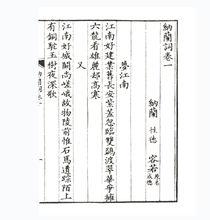 納蘭詞卷一
納蘭 性德 容若 原名成德
夢江南
江南好建業舊長安紫蓋忽臨雙鷁渡翠華爭擁
六龍看雄麗却高寒
又
江南好城闕尚嵯峨故物陵前惟石馬遺踪陌上
有銅駝玉樹夜深歌